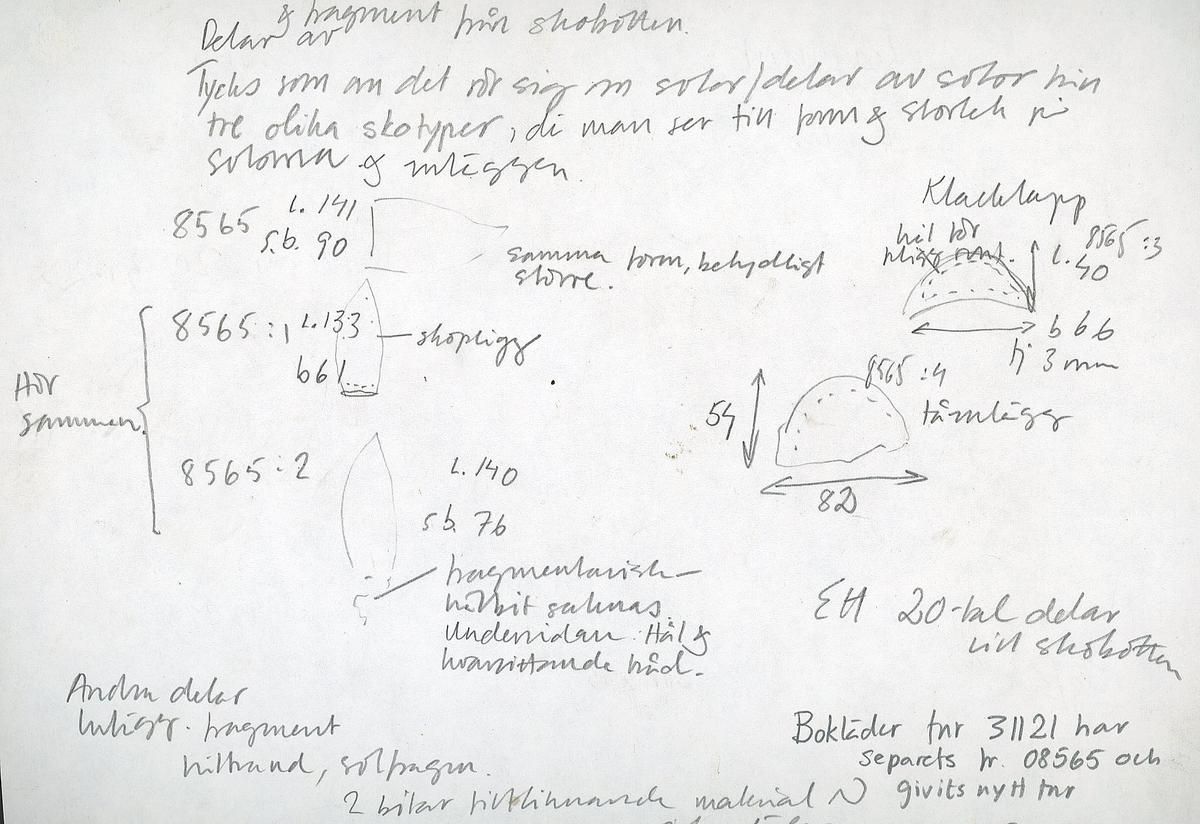 Delar av & fragment från skobotten.
Tycks som om det rör sig om sulor/delar av sulor från
tre olika skotyper, då man ser till form & storlek på
sulorna & inläggen.
8565 L. 141
s.b. 90
samma form, betydligt
större.
Klacklapp
hål för
pligg runt.
8565:3
L. 40
b 66
tj 3 mm
8565:1 L.133
b 61
skopligg
Hör
samman.
8565:4
tåinlägg
54
82
8565:2
L. 140
s b. 76
fragmentarisk
hälbit saknas
Undersidan. Hål &
kvarsittande tråd.
Ett 20-tal delar
till skobotten
Andra delar
Inlägg. fragment
hälrand, sulfragm.
2 bitar filtliknande material
Bokläder fnr 31121 har
separets fr. 08565 och
givits nytt fnr